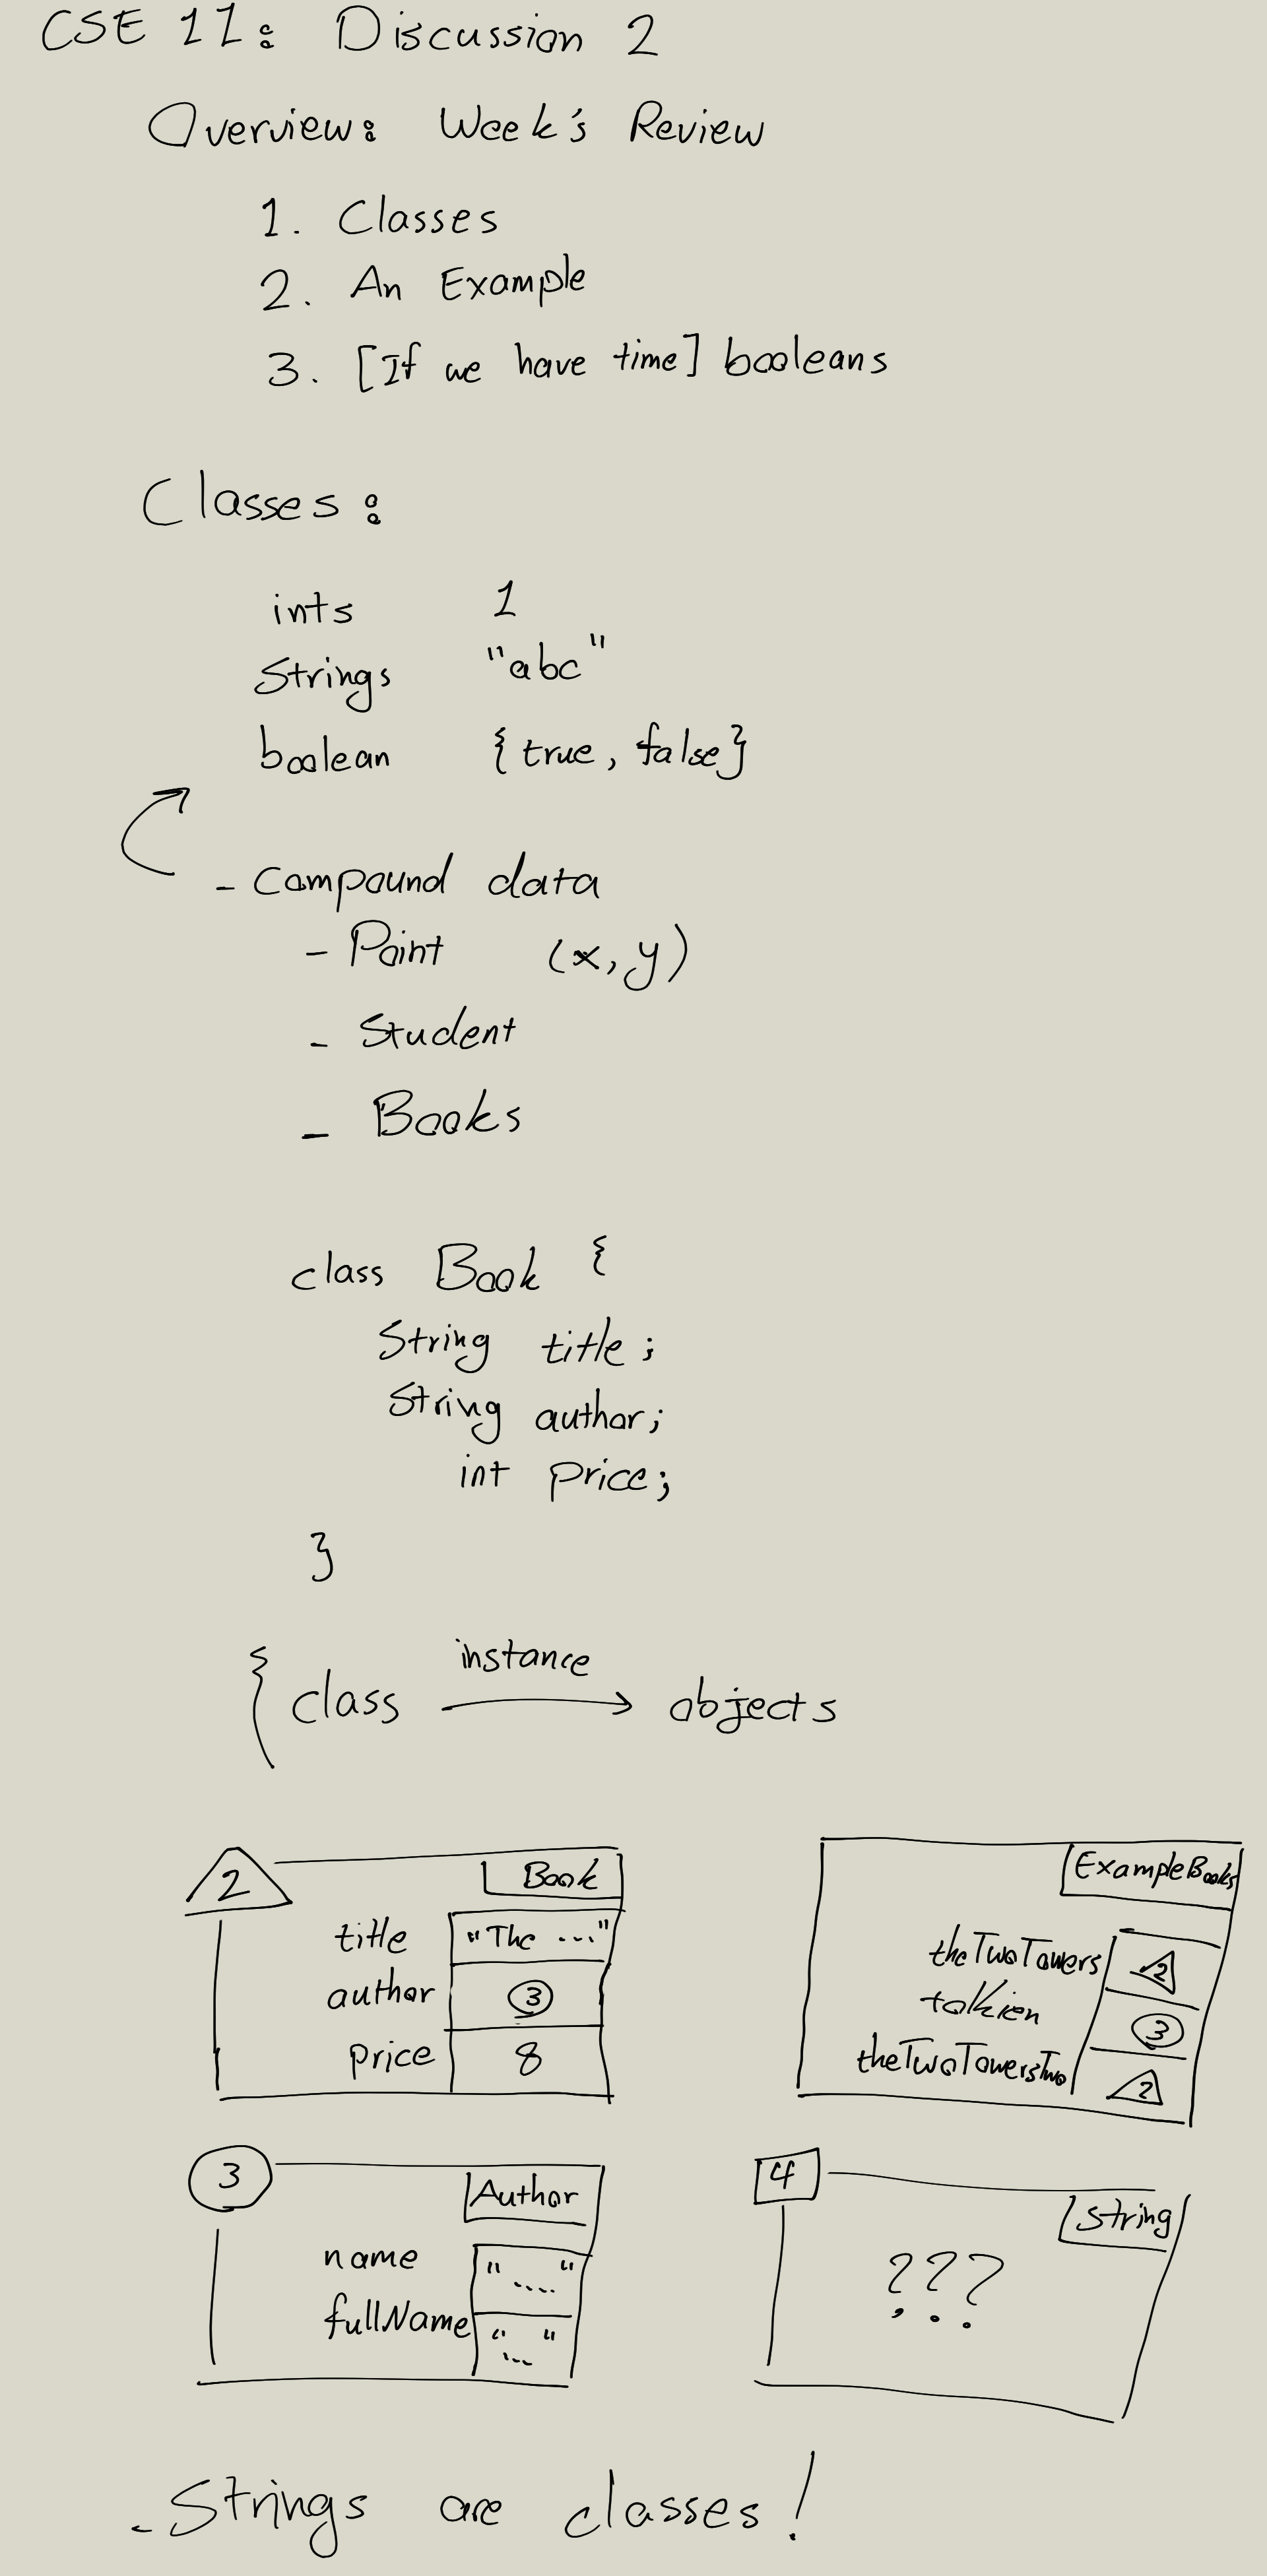 CSE 11: Discussion 2
Overview: Week's Review
1. Classes
2. An Example
3. [If we have time] booleans
Classes:
ints 1
Strings "abc"
boolean {true, false}
- Compound data
- Point (x, y)
- Student
- Books
class Book {
String title;
String author;
int price;
}
instance
{ class → objects
2 Book
title "The ..."
author 3
price 8
ExampleBooks
theTwoTowers 2
tolkien 3
theTwoTowersTwo 2
3 Author
name "...."
fullName "..."
4 String
???
- Strings are classes!